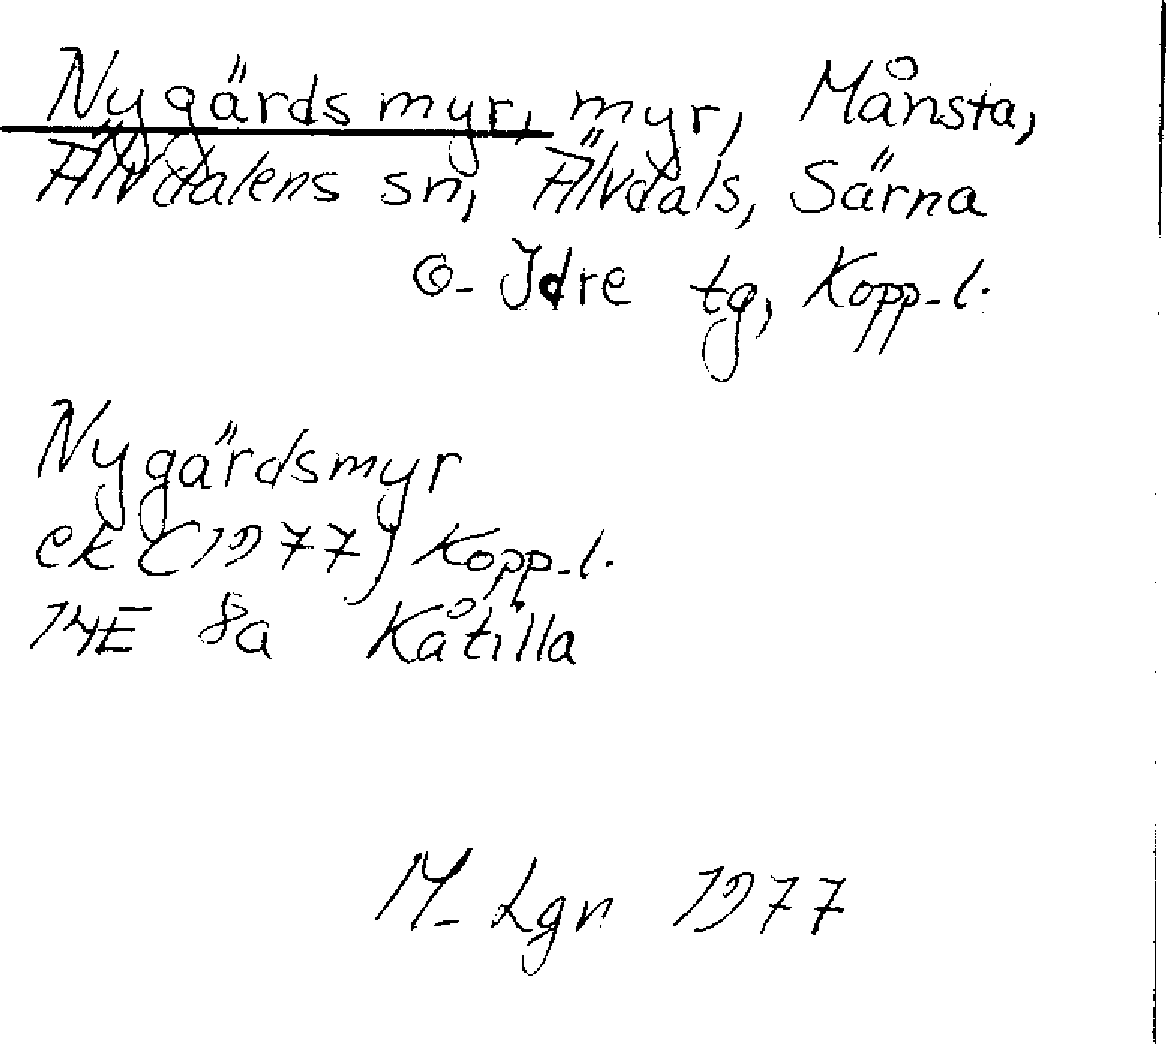 Nygärdsmyr, myr, Månsta,
Älvdalens sn, Älvdals, Särna
o. Idre tg, Kopp. l.
Nygärdsmyr
ek (1977) Kopp. l.
14E 8a Kåtilla
M. Lgn 1977